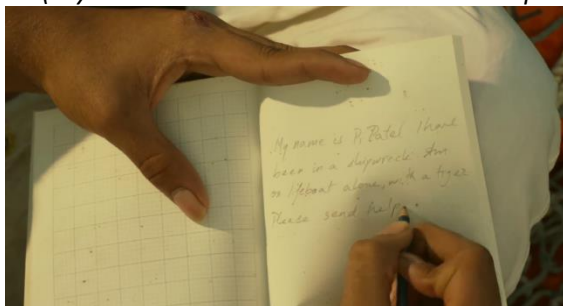 My name is Pi Patel I have
been in a shipwreck I am
on lifeboat alone, with a tiger
Please send help.